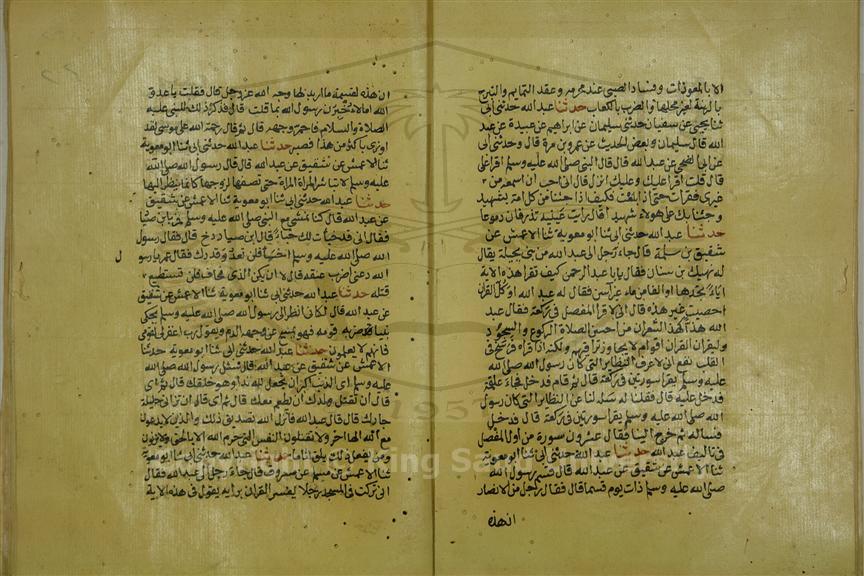 الا بالمعوذات وفساد الصبي غير محرمه وعقد التمايم والتبرج
بالزينة لغير محلها والضرب بالكعاب حدثنا عبد الله حدثني ابي
ثنا يحيى عن سفيان حدثني سليمان عن ابراهيم عن عبيدة عن عبد
الله قال سليمان وبعض الحديث عن عمرو بن مرة قال وحدثني ابي
عن ابي الضحى عن عبد الله قال قال النبي صلى الله عليه وسلم اقرا علي
قال قلت اقرا عليك وعليك انزل قال اني احب ان اسمعه من
غيري فقرات حتى اذا بلغت فكيف اذا جئنا من كل امة بشهيد
وجئنا بك على هؤلاء شهيدا قال رايت عينيه تذرفان دموعا
حدثنا عبد الله حدثني ابي ثنا ابو معوية ثنا الاعمش عن
شقيق بن سلمة قال جاء رجل الى عبد الله من بني بجيلة يقال
له نهيك بن سنان فقال يابا عبد الرحمن كيف تقرا هذه الاية
اياء تجدها او الفا من ماء غير آسن فقال له عبد الله او كل القران
احصيت غير هذه قال اني لاقرا المفصل في ركعة فقال عبد
الله هذا كهذ الشعر ان من احسن الصلاة الركوع والسجود
وليقران القران اقوام لا يجاوز تراقيهم ولكنه اذا قراه فرسخ في
القلب نفع اني لاعرف النظاير التي كان رسول الله صلى الله
عليه وسلم يقرا سورتين في ركعة قال ثم قام فدخل فجاء علقمة
فدخل عليه قال فقلنا له سله لنا عن النظاير التي كان رسول
الله صلى الله عليه وسلم يقرا سورتين في ركعة قال فدخل
فساله ثم خرج الينا فقال عشرون سورة من اول المفصل
في تاليف عبد الله حدثنا عبد الله حدثني ابي ثنا ابو معوية
ثنا الاعمش عن شقيق عن عبد الله قال قسم رسول الله
صلى الله عليه وسلم ذات يوم قسما قال فقال رجل من الانصار
ان هذه
ان هذه لقسمة ما اريد بها وجه الله عز وجل قال فقلت يا عدو
الله اما لاخبرن رسول الله بما قلت قال فذكر ذلك للنبي عليه
الصلاة والسلام فاحمر وجهه قال ثم قال رحمة الله على موسى لقد
اوذي باكثر من هذا فصبر حدثنا عبد الله حدثني ابي ثنا ابو معوية
ثنا الاعمش عن شقيق عن عبد الله قال قال رسول الله صلى الله
عليه وسلم لا تباشر المراة المراة حتى تصفها لزوجها كانما ينظر اليها
حدثنا عبد الله حدثني ابي ثنا ابو معوية ثنا الاعمش عن شقيق
عن عبد الله قال كنا نمشي مع النبي صلى الله عليه وسلم فمر بابن صياد
فقال اني قد خبات لك خباء قال ابن صياد دخ قال فقال رسول
الله صلى الله عليه وسلم اخسا فلن تعدو قدرك فقال عمر يا رسول
الله دعني اضرب عنقه قال لا ان يكن الذي تخاف فلن تستطيع
قتله حدثنا عبد الله حدثني ابي ثنا ابو معوية ثنا الاعمش عن شقيق
عن عبد الله قال لكاني انظر الى رسول الله صلى الله عليه وسلم يحكي
نبيا ضربه قومه فهو يمسح عن وجهه الدم ويقول رب اغفر لقومي
فانهم لا يعلمون حدثنا عبد الله حدثني ابي ثنا ابو معوية حدثنا
الاعمش عن شقيق عن عبد الله قال سئل رسول الله صلى الله
عليه وسلم اي الذنب اكبر ان تجعل لله ندا وهو خلقك قال ثم اي
قال ان تقتل ولدك ان يطعم معك قال ثم اي قال ان تزاني حليلة
جارك قال قال عبد الله فانزل الله تصديق ذلك والذين لا يدعون
مع الله الها اخر ولا يقتلون النفس التي حرم الله الا بالحق ولا يزنون
ومن يفعل ذلك يلق اثاما حدثنا عبد الله حدثني ابي ثنا ابو معوية
ثنا الاعمش عن مسلم عن مسروق قال جاء رجل الى عبد الله فقال
اني تركت في المسجد رجلا يفسر القران برايه يقول في هذه الاية